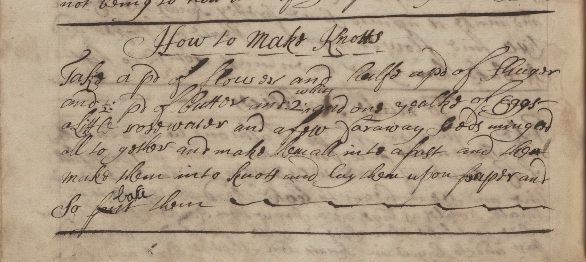 How to Make Knotts
Take a pd of flower and halfe a pd of Shuger
and ½ pd of butter and 2 whits and one yealke of Eggs
a little rosewater and a few Caraway seeds minged
all to gether and make them all into a past and then
make them into knott and lay them upon paper and
So bake them